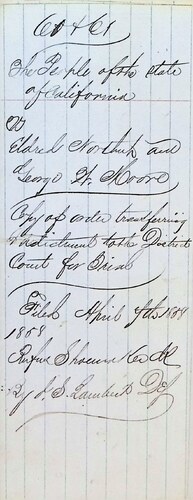 The People of the State
of California
vs
Eldred Northup and
George H. Moore
Copy of order transferring
Indictment to the District
Court for Trial
Filed April 9th 1858
1858
Rufus Shoemaker Clk
By J. S. Lambert Dep